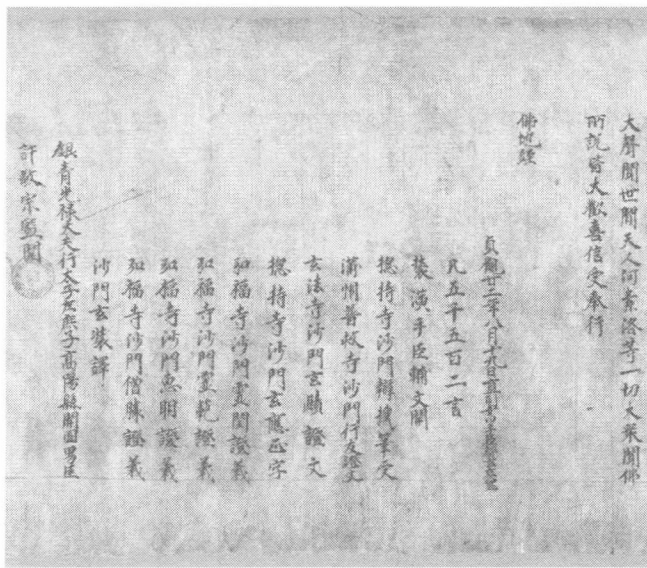 大聲聞世間天人阿素洛等一切大衆聞佛
所說皆大歡喜信受奉行
佛地經
貞觀廿二年八月十九日直
凡五千五百二言
裝潢手臣輔文開
揔持寺沙門辯機筆受
蒲州普救寺沙門行友證文
玄法寺沙門玄賾證文
揔持寺沙門玄應正字
弘福寺沙門靈閏證義
弘福寺沙門靈範證義
弘福寺沙門惠明證義
弘福寺沙門僧勝證義
沙門玄奘譯
銀青光祿大夫行太子左庶子高陽縣開國男臣
許敬宗監閱